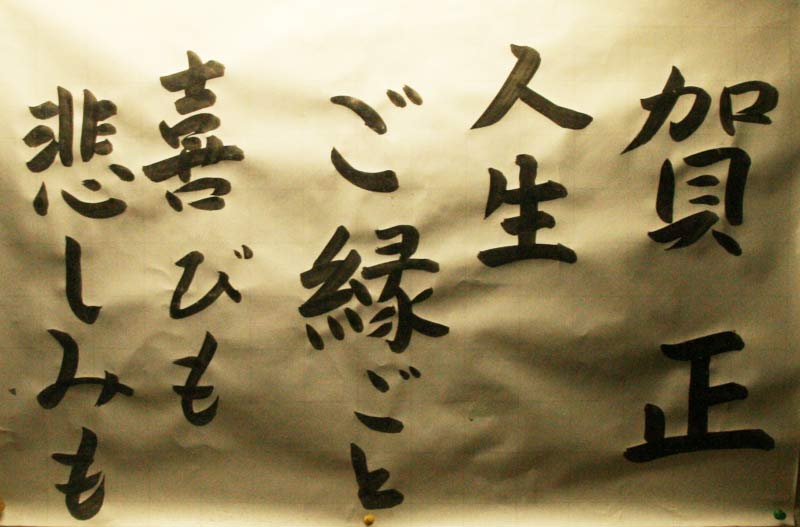 賀正
人生
ご縁ごと
喜びも
悲しみも